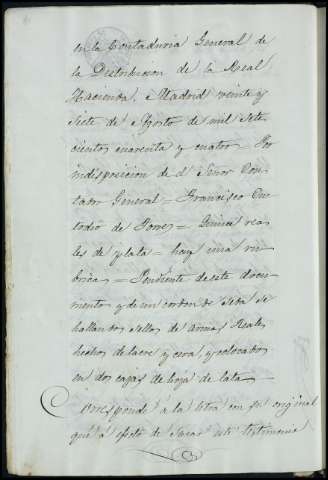 en la Contaduria General de
la Distribucion de la Real
Hacienda. Madrid veinte y
siete de Agosto de mil sete
cientos cuarenta y cuatro = Por
indisposicion de el Señor Con
tador General = Francisco Cus
todio de Torres = Quince rea
les de plata = hay una ru
brica = Pendiente de este docu
mento y de un cordon de seda se
hallan dos sellos de armas Reales
hechos de lacre y cera, y colocados
en dos cajas de hoja de lata =
Corresponde á la letra con su original
que á efecto de sacar este testimonio